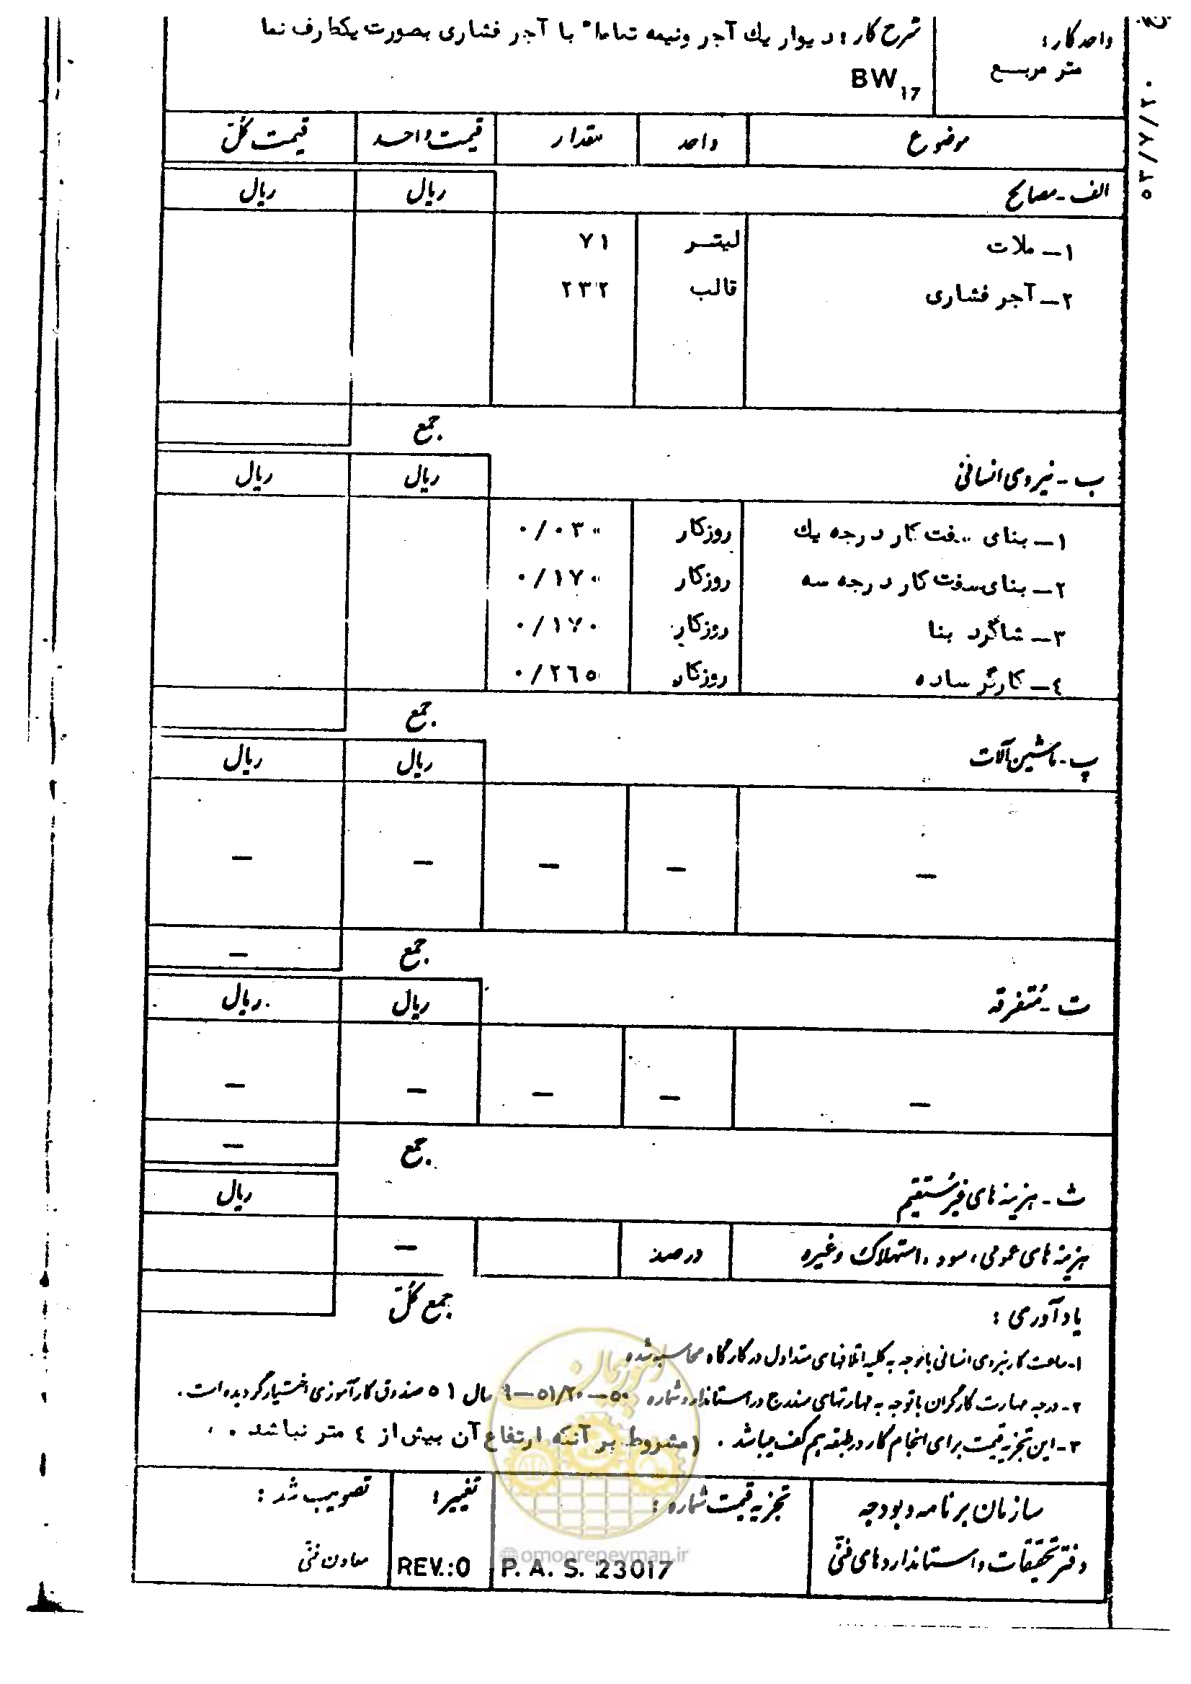 واحد کار :
متر مربع
شرح کار : دیوار یك آجر ونیمه تماما" با آجر فشاری بصورت یکطرف نما
BW ۱۷
۵۳/۷/۲۰
موضوع واحد مقدار قیمت واحد قیمت کُلّ
الف - مصالح ریال ریال
۱ـ ملات لیتر ۷۱
۲ـ آجر فشاری قالب ۲۳۲
جمع
ب - نیروی انسانی ریال ریال
۱ـ بنای سفت کار درجه یك روزکار ۰/۰۳۰
۲ـ بنای سفت کار درجه سه روزکار ۰/۱۷۰
۳ـ شاگرد بنا روزکار ۰/۱۷۰
٤ـ کارگر ساده روزکار ۰/۲٦۵
جمع
پ - ماشین آلات ریال ریال
— — — — —
جمع —
ت - مُتفرقه ریال ریال
— — — — —
جمع —
ث - هزینه های غیرمُستقیم ریال
هزینه های عمومی ، سود ، استهلاک وغیره درصد —
جمع کُلّ
یادآوری :
۱- ساعت کار نیروی انسانی باتوجه به کلیه اتلافهای متداول در کارگاه محاسبه شده
۲- درجه مهارت کارگران باتوجه به مهارتهای مندرج در استاندارد شماره ۵۰—۵۱/۲۰—۹ سال ۵۱ صندوق کارآموزی اختیار گردیده است .
۳- این تجزیه قیمت برای انجام کار در طبقه هم کف میباشد . (مشروط بر آنکه ارتفاع آن بیش از ٤ متر نباشد .
سازمان برنامه و بودجه
دفتر تحقیقات و استانداردهای فنّی
تجزیه قیمت شماره :
P. A. S. 23017
تغییر :
REV.:0
تصویب شد :
معاون فنّی
امور پیمان
@omoorepeyman.ir